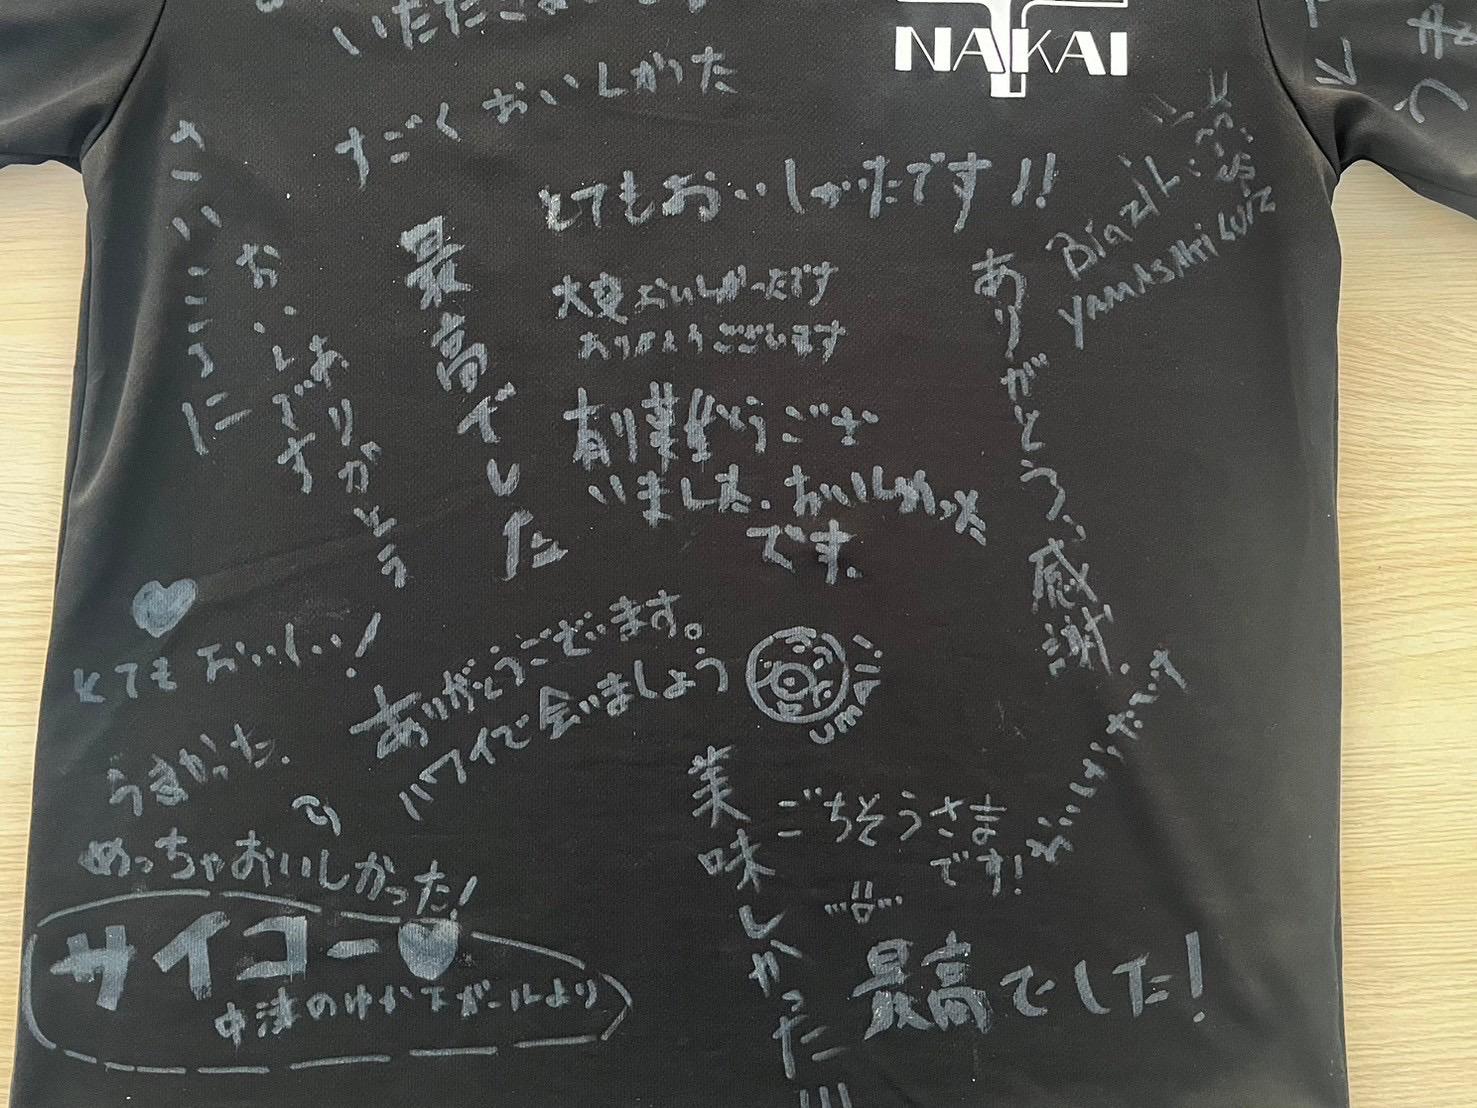 NAKAI
いただ
すごく おいしかった
とてもおいしかったです!!
Brazil
YAMASAKI LUIZ
最高でした
大変おいしかったです
ありがとうございます
おいしいです
ありがとう
ありがとう、感謝。
いました。おいしかった
です。
とてもおいしい!
ありがとうございます。
ハワイで会いましょう
UMAI!!
うまかった。
めっちゃおいしかった!
サイコー♥
中津のゆかたガールより
美味しかった!!!
ごちそうさま
です!
おいしかったです
最高でした!